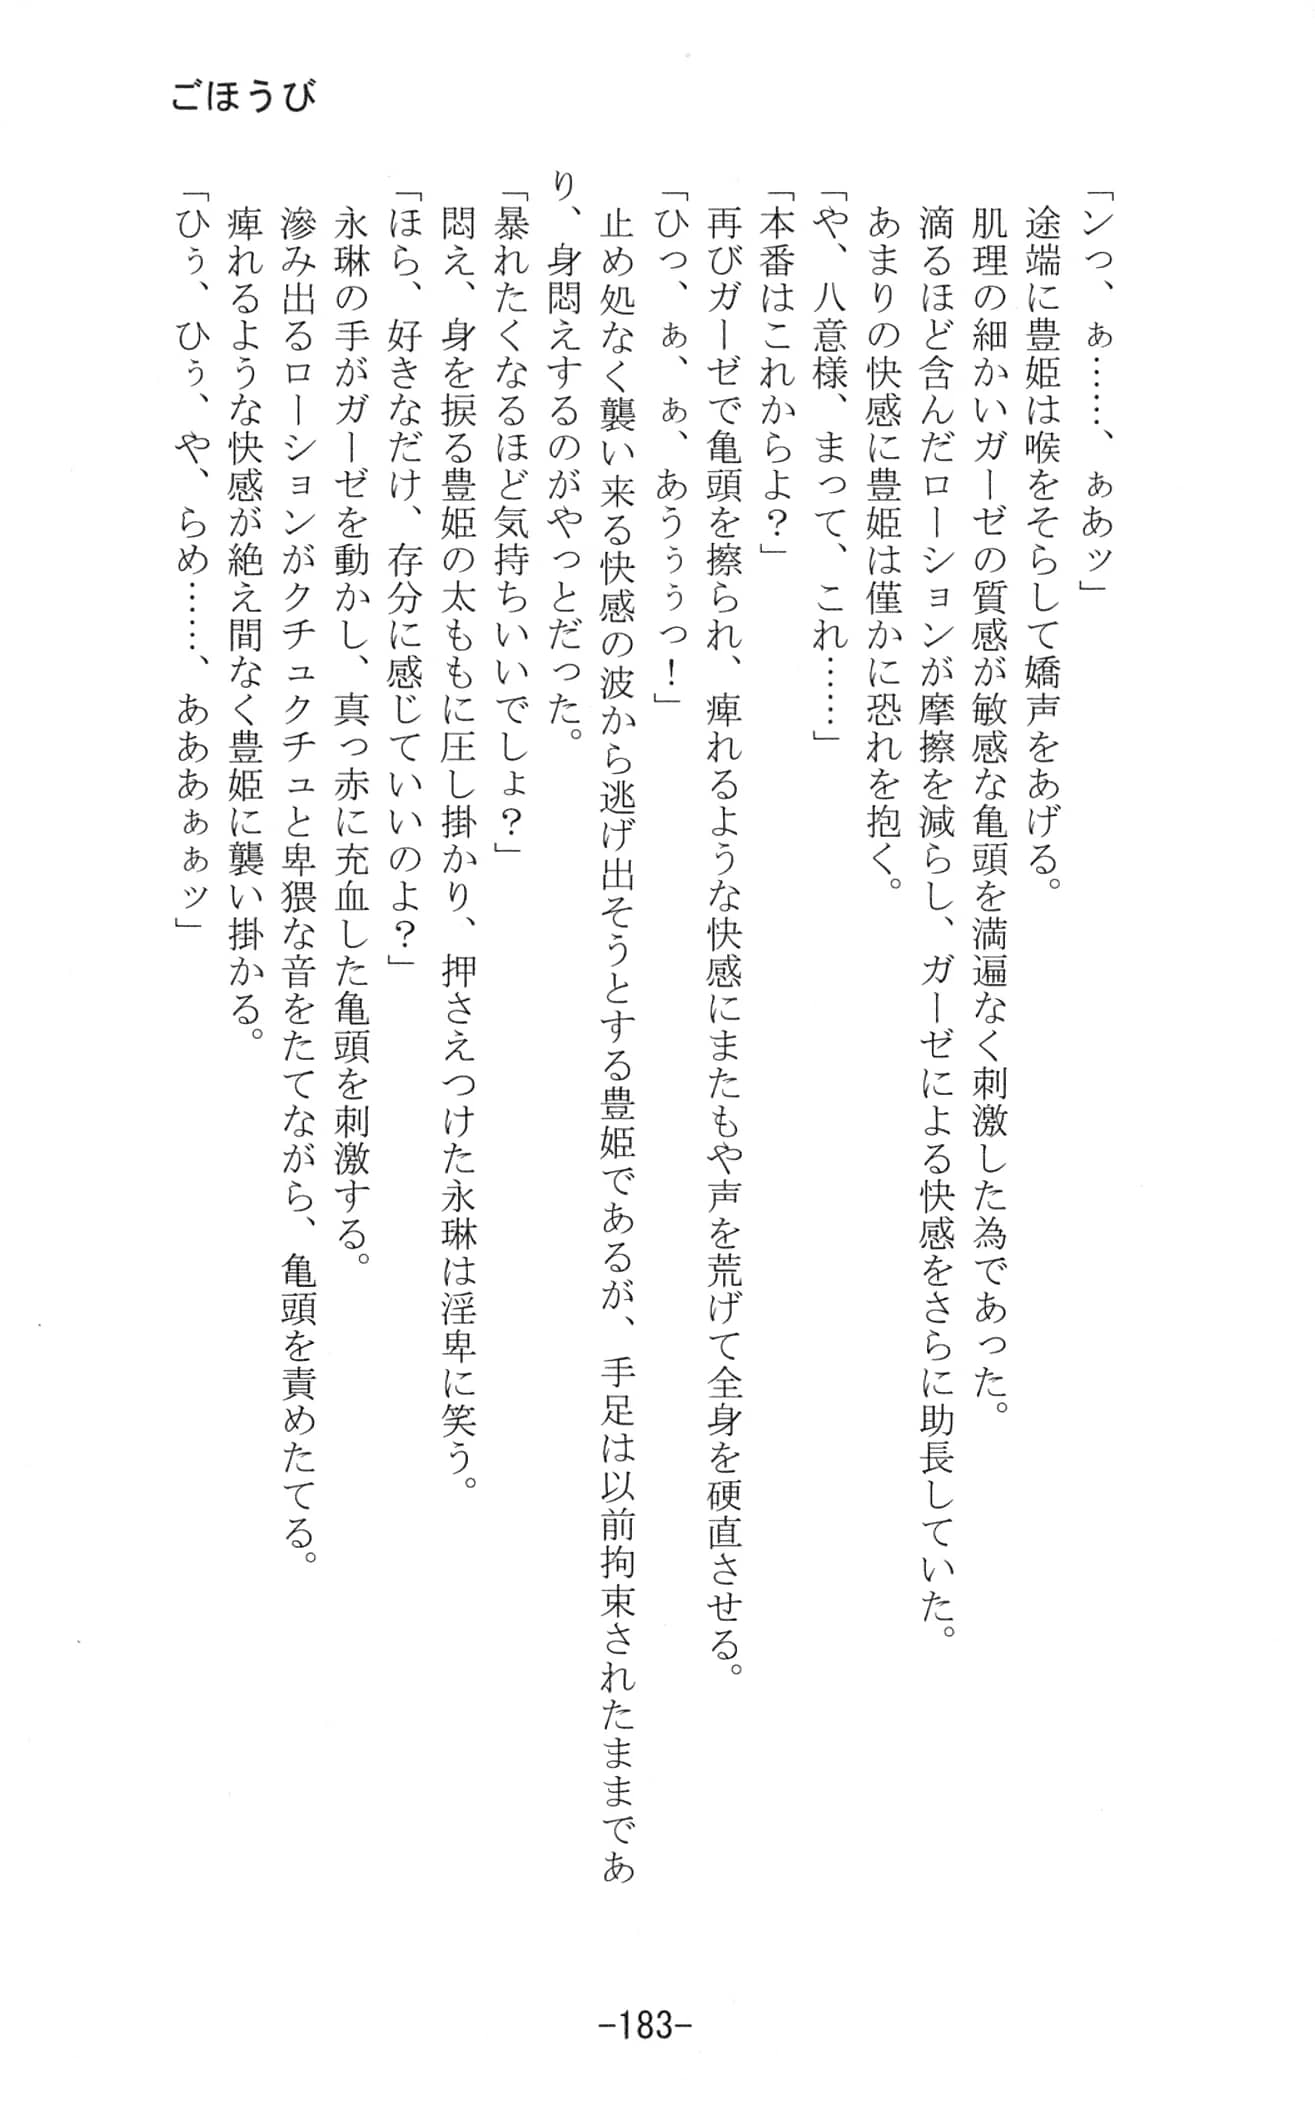 ごほうび
「ンっ、ぁ……、ぁあッ」
途端に豊姫は喉をそらして嬌声をあげる。
肌理の細かいガーゼの質感が敏感な亀頭を満遍なく刺激した為であった。
滴るほど含んだローションが摩擦を減らし、ガーゼによる快感をさらに助長していた。
あまりの快感に豊姫は僅かに恐れを抱く。
「や、八意様、まって、これ……」
「本番はこれからよ？」
再びガーゼで亀頭を擦られ、痺れるような快感にまたもや声を荒げて全身を硬直させる。
「ひっ、ぁ、ぁ、あうぅぅっ！」
止め処なく襲い来る快感の波から逃げ出そうとする豊姫であるが、手足は以前拘束されたままであ
り、身悶えするのがやっとだった。
「暴れたくなるほど気持ちいいでしょ？」
悶え、身を捩る豊姫の太ももに圧し掛かり、押さえつけた永琳は淫卑に笑う。
「ほら、好きなだけ、存分に感じていいのよ？」
永琳の手がガーゼを動かし、真っ赤に充血した亀頭を刺激する。
滲み出るローションがクチュクチュと卑猥な音をたてながら、亀頭を責めたてる。
痺れるような快感が絶え間なく豊姫に襲い掛かる。
「ひぅ、ひぅ、や、らめ……、あああぁぁッ」
-183-